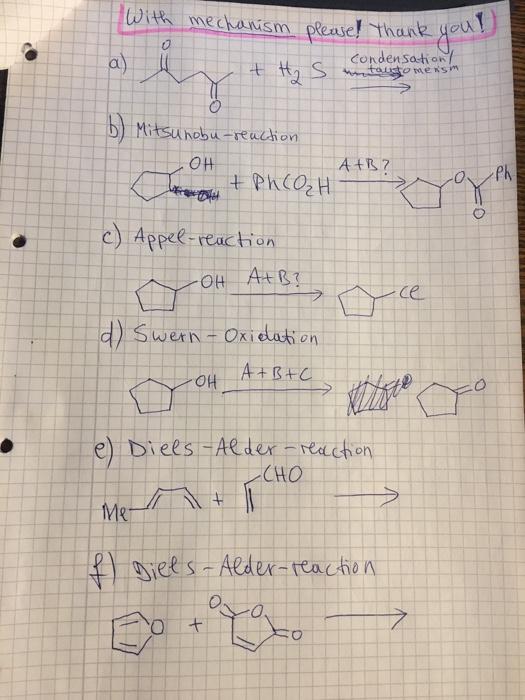 With mechanism please! Thank you!
a) O O + H2S condensation/ tautomerism
b) Mitsunobu-reaction
OH + PhCO2H A+B? O Ph O
c) Appel-reaction
OH A+B? Cl
d) Swern-Oxidation
OH A+B+C O
e) Diels-Alder-reaction
Me + CHO
f) Diels-Alder-reaction
O + O O O